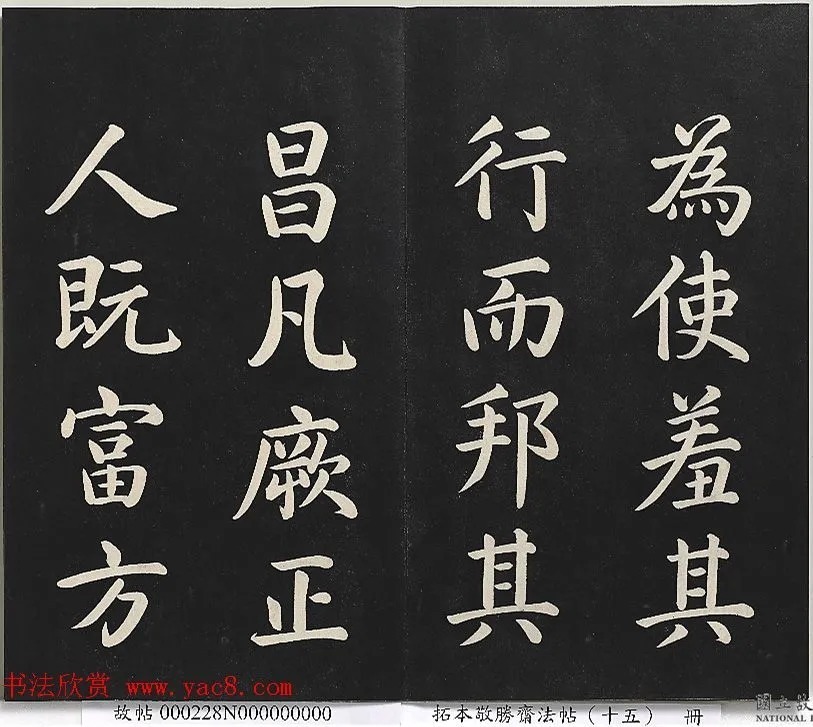 為使羞其
行而邦其
昌凡厥正
人既富方
书法欣赏 www.yac8.com
故帖 000228N000000000
拓本敬勝齋法帖（十五） 冊
國立故
NATIONAL